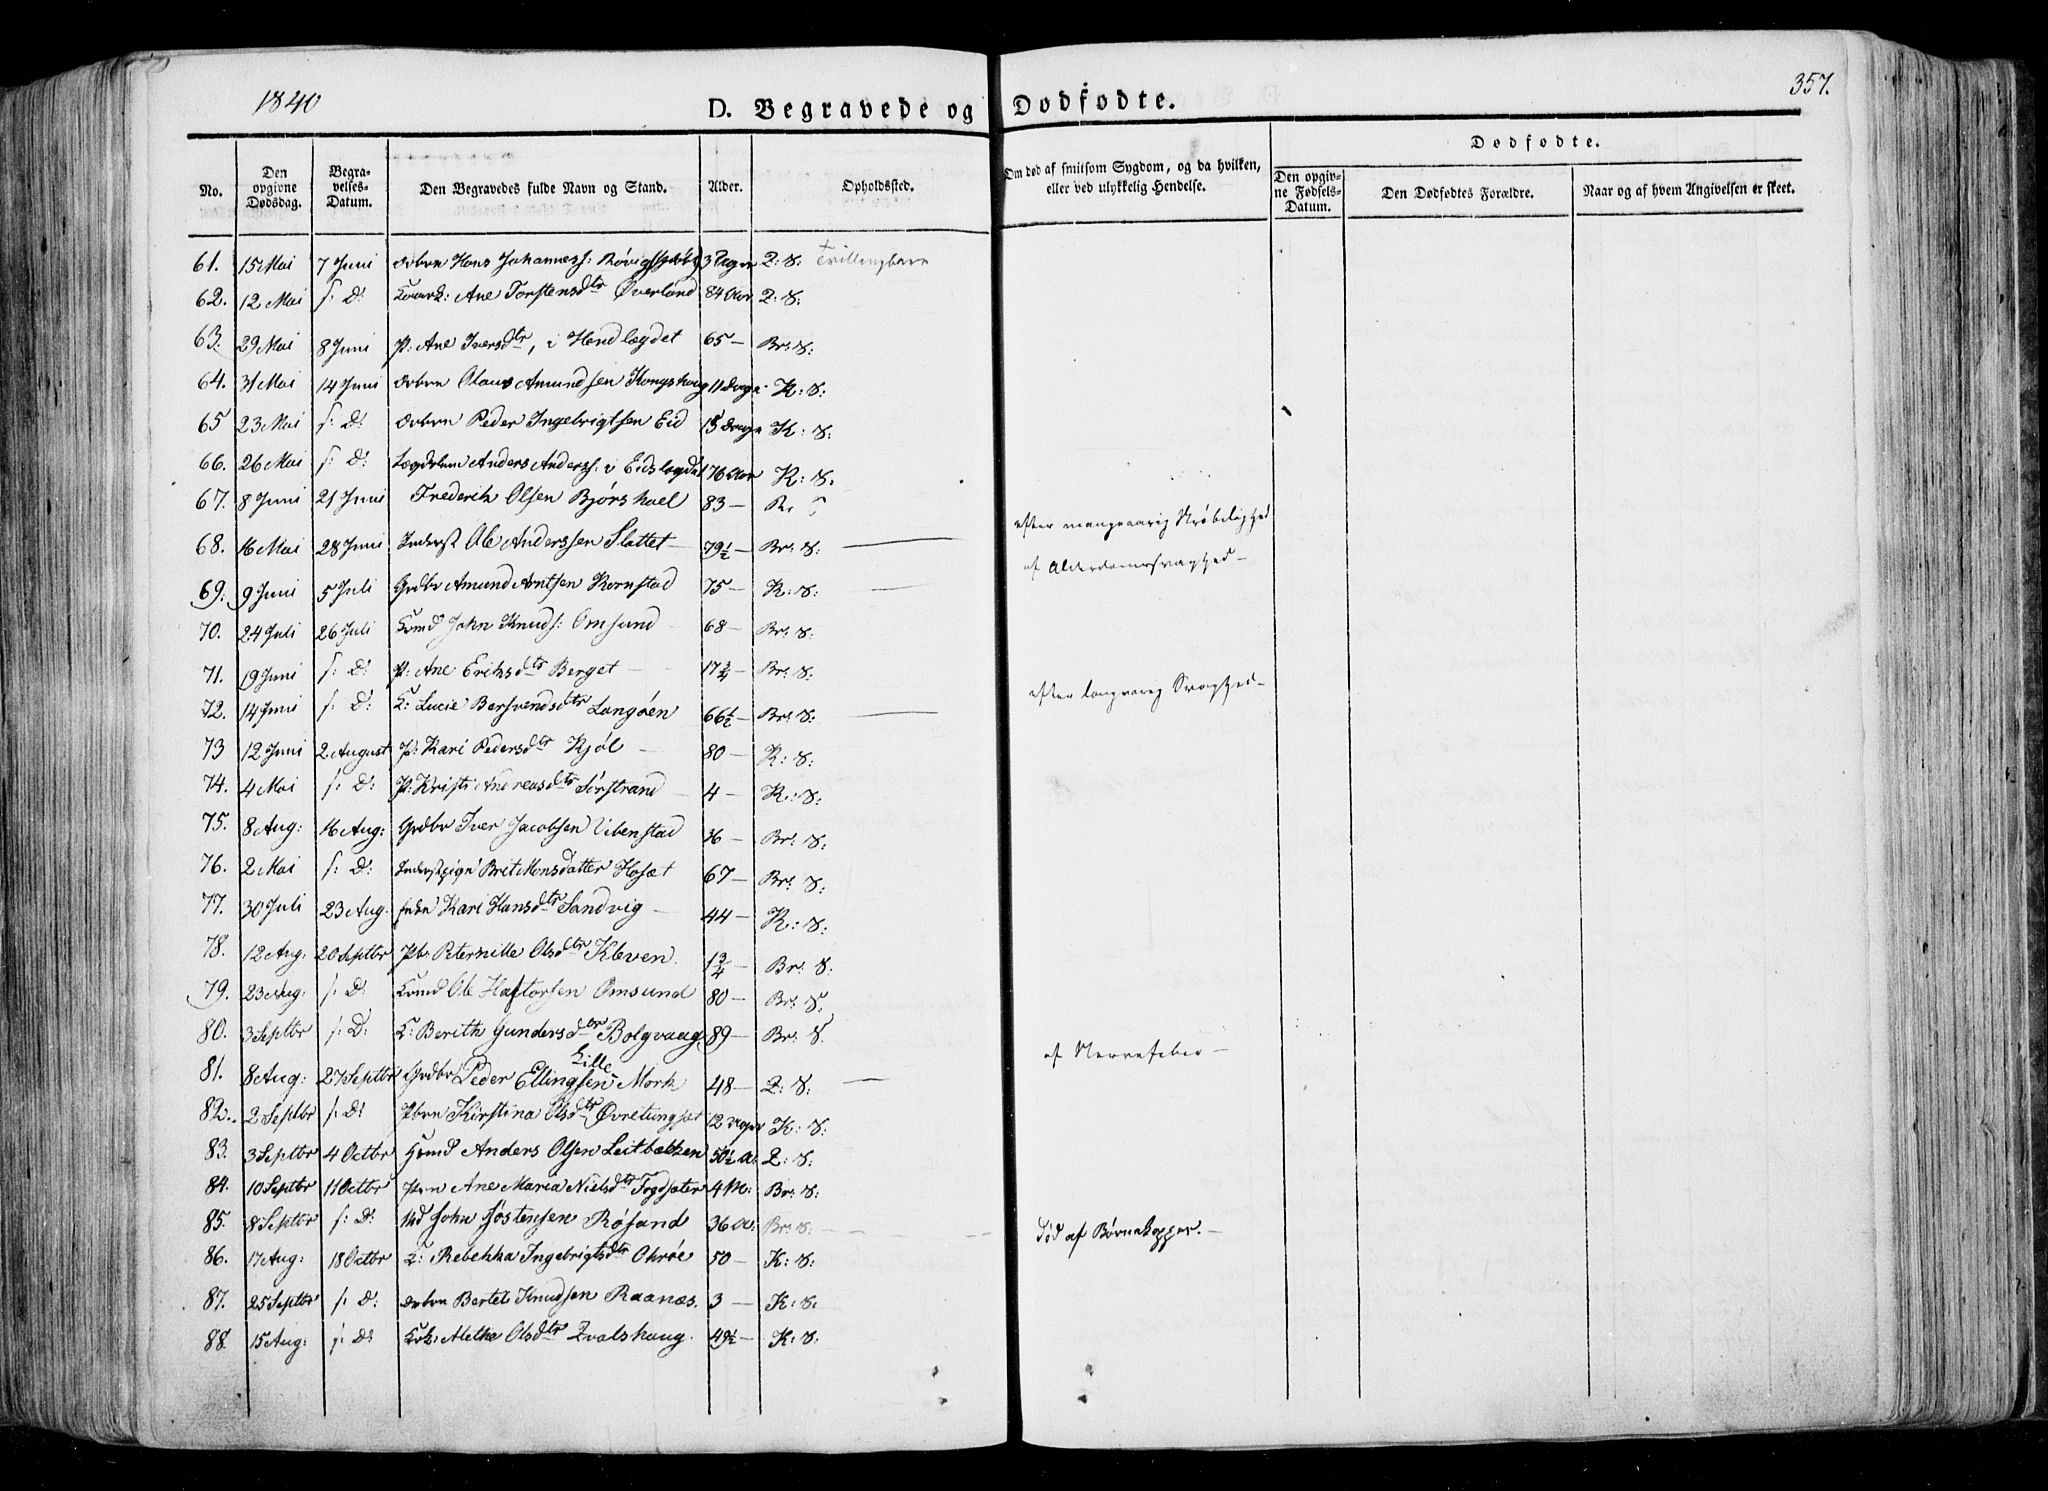 1840
D. Begravede og Dødfødte.
357.
No. Den opgivne Dødsdag. Begravelses-Datum. Den Begravedes fulde Navn og Stand. Alder. Opholdssted. Om død af smitsom Sygdom, og da hvilken, eller ved ulykkelig Hendelse. Dødfødte. Den opgivne Fødsels-Datum. Den Dødfødtes Forældre. Naar og af hvem Angivelsen er skeet.
61. 15 Mai 7 Juni Hans Johanness: 3 Q: S: Trillingbarn
62. 12 Mai s: D: Ane Torstensdtr Øverland 84 Aar Q: S:
63. 29 Mai 8 Juni P: Ane Iversdtr, i Hendlægdet 65 — Br: S:
64. 31 Mai 14 Juni Olaus Amundsen Kongshoug 11 Dage K: S:
65 23 Mai s: D: Peder Ingebrigtsen Eid 13 Dage K: S:
66. 26 Mai s: D: Lægdslem Anders Anderss: i Eidslægdet 76 Aar K: S:
67. 8 Juni 21 Juni Frederik Olsen Bjørshael 83 — K:
68. 16 Mai 28 Juni Inderst Ole Anderssen Slattet — 79½ — Br: S: efter mangeaarig Skrøbelighed
69. 9 Juni 5 Juli Grdbr Amund Arntsen Kornstad 75 — K: S: af Alderdomssvaghed —
70. 24 Juli 26 Juli John Knuds: Omsund — 68 — Br: S:
71. 19 Juni s: D: P: Ane Eriksdtr Berget — 17¾ — Br: S:
72. 14 Juni s: D: Lucie Bersvendsdtr Langøen 66½ — Br: S: efter langvarig Svaghed —
73 12 Juni 2 August P: Kari Pedersdtr Kjøl — 80 — K: S:
74. 4 Mai s: D: P: Kristi Andreasdtr Sørstrand — 4 — K: S:
75. 8 Aug: 16 Aug: Grdbr Iver Jacobsen Ubenstad 36 — Br: S:
76. 2 Mai s: D: Inderstpige Brit Monsdatter Hosæt 67 — Br: S:
77. 30 Juli 23 Aug. Kari Hansdtr Sandvig — 44 — K: S:
78. 12 Aug: 20 Septbr Pb: Pternille Olsdtr Kleven. 1¾ — Br: S:
79. 23 Aug: s: D: Ole Haftorsen Omsund 80 — Br: S:
80. 3 Septbr s: D: Berith Gundersdtr Bolgvaag 89 — Br: S.
81. 8 Aug: 27 Septbr Grdbr Peder Ellingsen Lille Mork 48 — Q: S: af Nervefeber —
82. 2 Septbr s: D: Pbrn Kirstina Olsdtr Øvretungsæt 12 Uger K: S:
83. 3 Septbr 4 Octbr Anders Olsen Leitbakken 50½ A: Q: S:
84. 10 Septbr 11 Octbr Ane Maria Nielsdtr Fogdsæter 4 M: Br: S:
85. 8 Septbr s: D: John Jostensen Røsand 36 A: Br: S: død af Børnekopper. —
86. 17 Aug: 18 Octbr Rebekka Ingebrigtsdtr Okrøe 50 — K: S:
87. 25 Septbr s: D: Bertel Knudsen Raanæs. 3 — K: S:
88 15 Aug: s: D: Methe Olsdtr Qvalshaug. 49½ — K: S: